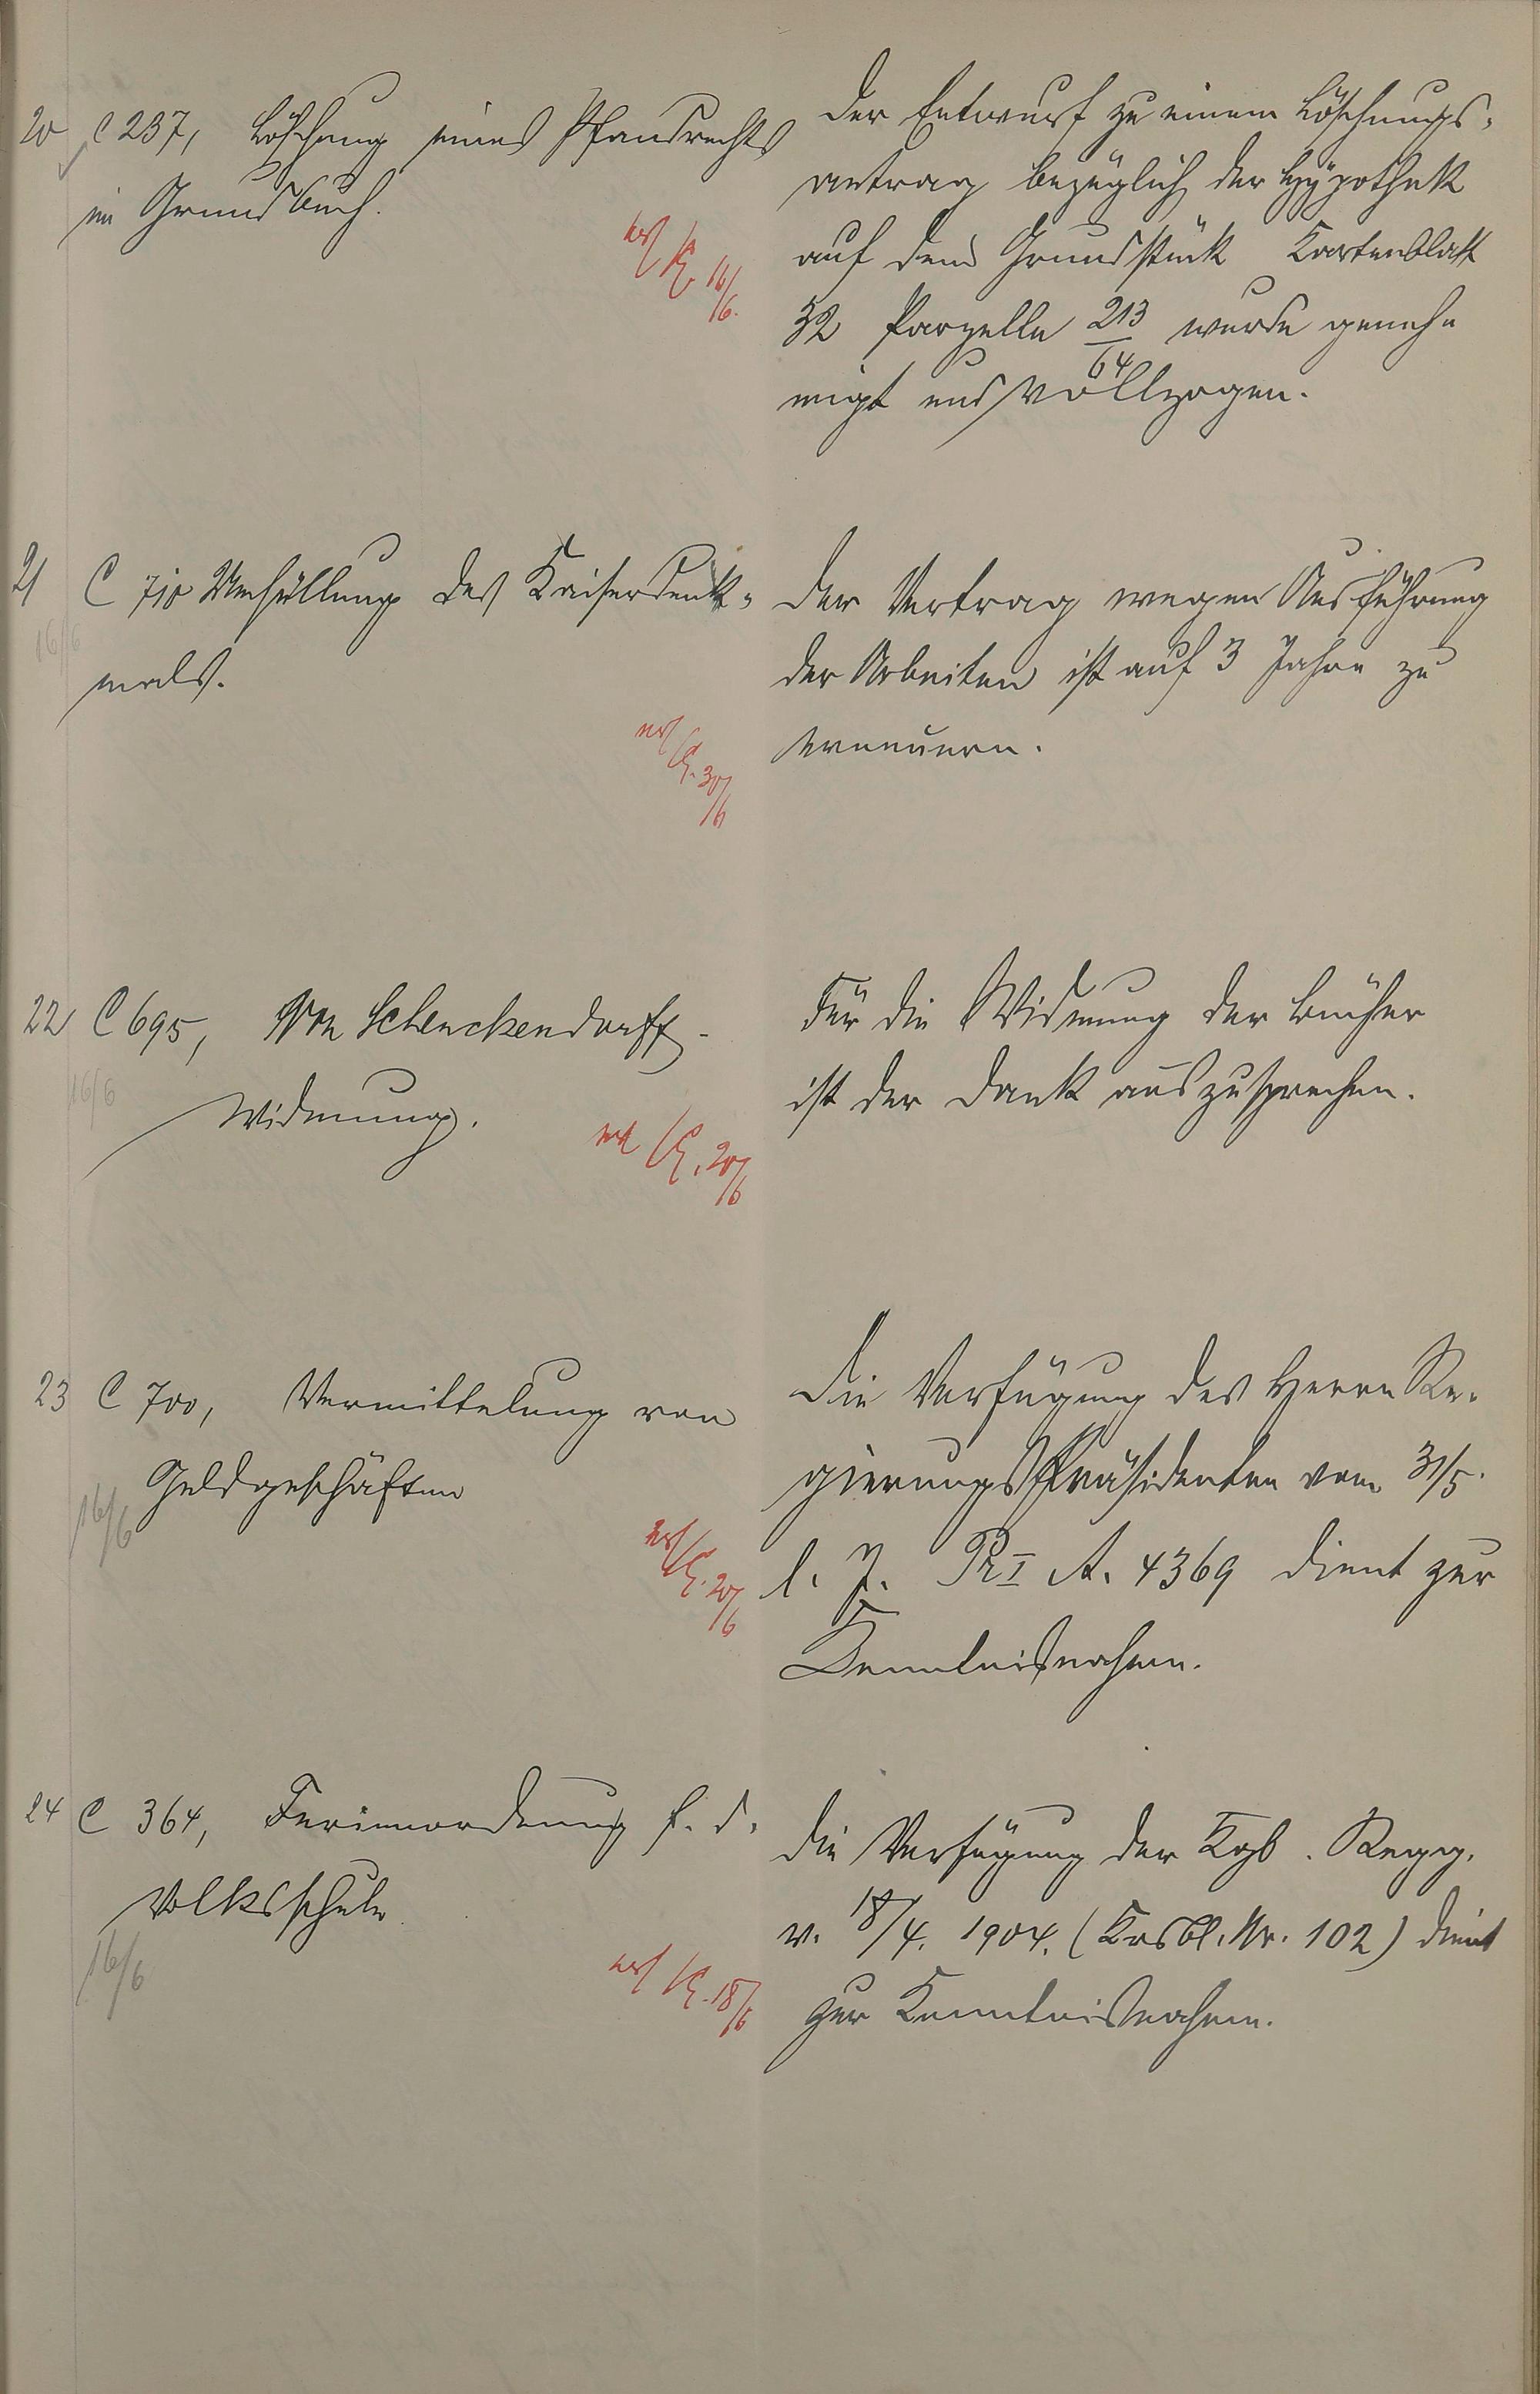 20 C 237, Löschung eines Pfandrechts
im Grundbuch.
16/6.
Der Entwurf zu einem Löschungs-
antrag bezüglich der Hypothek
auf dem Grundstück Kartenblatt
32 Parzelle 213/64 wurde geneh-
migt und vollzogen.
21 C 710 Umhüllung des Kaiserdenk-
mals.
16/6
30/6
Der Vertrag wegen Ausführung
der Arbeiten ist auf 3 Jahre zu
erneuern.
22 C 695, Von Schenckendorff-
Widmung.
16/6
20/6
Für die Widmung der Bücher
ist der Dank auszusprechen.
23 C 700, Vermittelung von
Geldgeschäften
16/6
20/6
Die Verfügung des Herrn Re-
gierungs Präsidenten vom 31/5.
l. J. Pr I A. 4369 dient zur
Kenntnisnahme.
24 C 364, Ferienordnung f. d.
Volksschule
16/6
18/6
Die Verfügung der Kgl. Regg.
v. 18/4. 1904. (Krsbl. Nr. 102) dient
zur Kenntnisnahme.